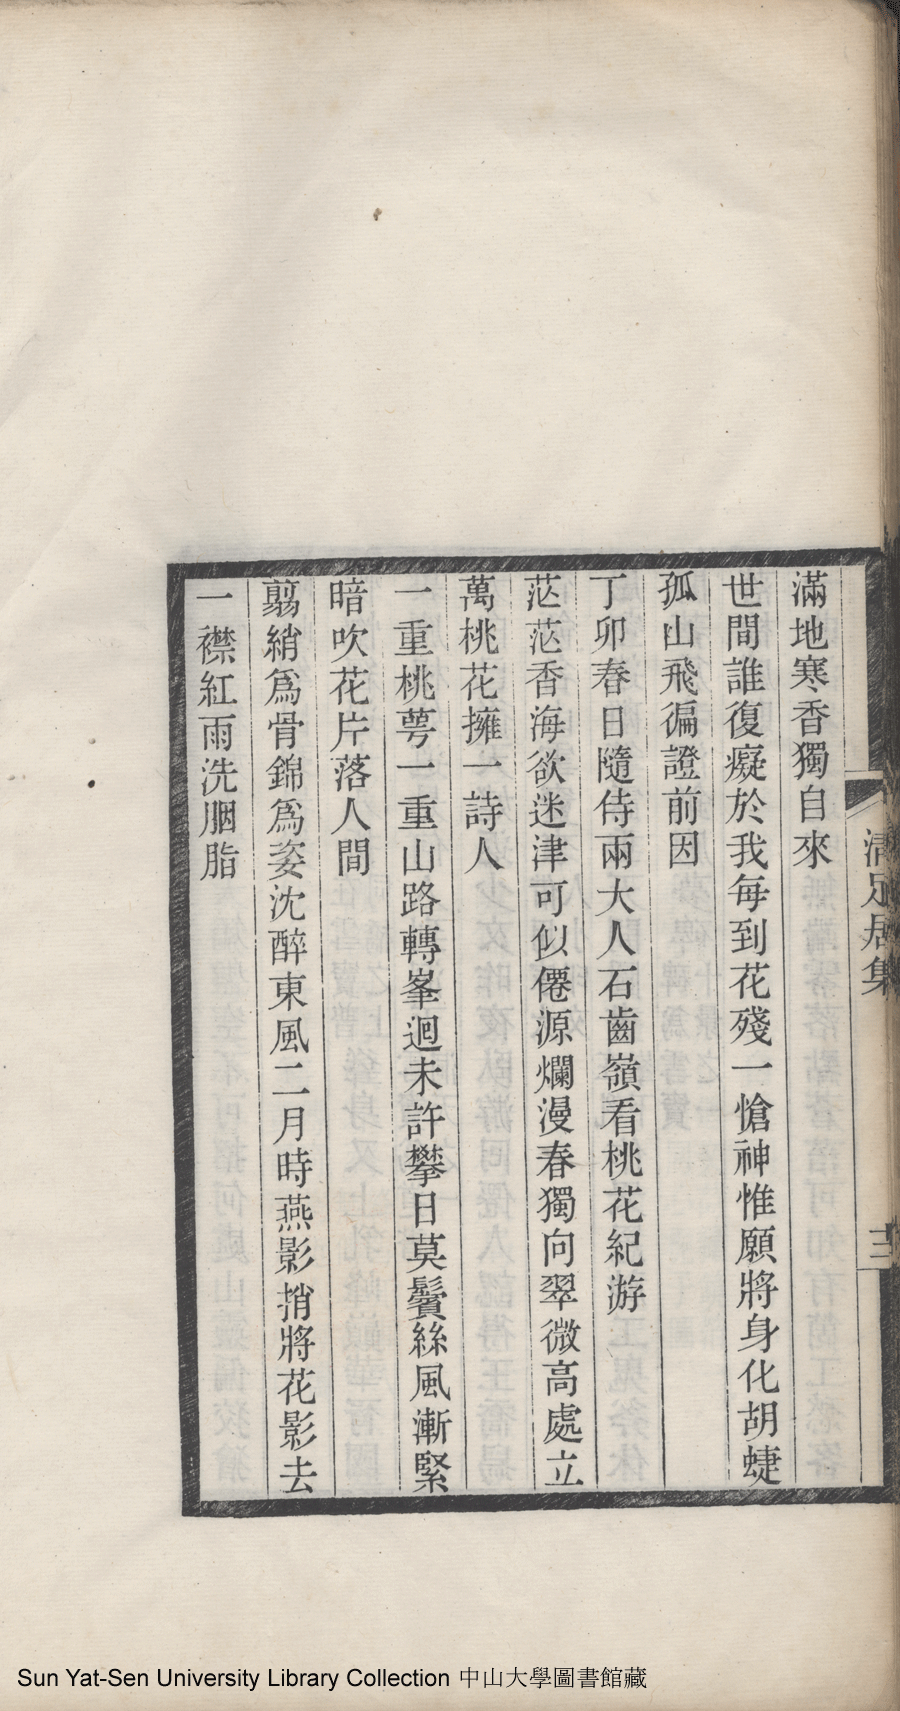 滿地寒香獨自來
世間誰復癡於我每到花殘一愴神惟願將身化胡蜨
孤山飛徧證前因
丁卯春日隨侍兩大人石齒嶺看桃花紀游
茫茫香海欲迷津可似僊源爛漫春獨向翠微高處立
萬桃花擁一詩人
一重桃萼一重山路轉峯迴未許攀日莫鬢絲風漸緊
暗吹花片落人間
翦綃爲骨錦爲姿沈醉東風二月時燕影捎將花影去
一襟紅雨洗胭脂
清足居集
Sun Yat-Sen University Library Collection 中山大學圖書館藏